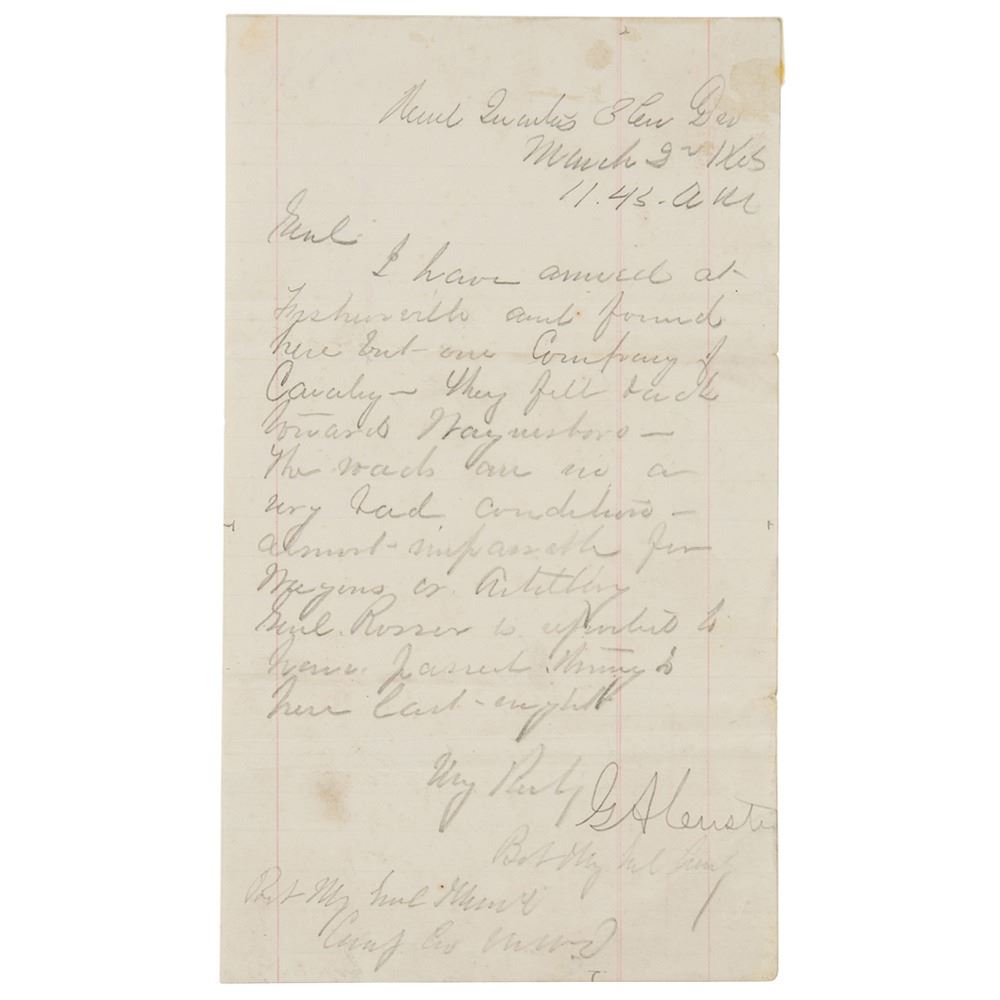 Head Quarters 3 Cav Div
March 2nd 1865
11.45. A M
Genl
I have arrived at
Fishersville and found
here but one Company of
Cavalry — they fell back
towards Waynesboro —
The roads are in a
very bad condition —
almost impassable for
Wagons or Artillery
Genl. Rosser is reported to
have passed through
here last night
Very Resply
G A Custer
Bvt Maj Genl Comdg
Bvt Maj Genl Merritt
Cav